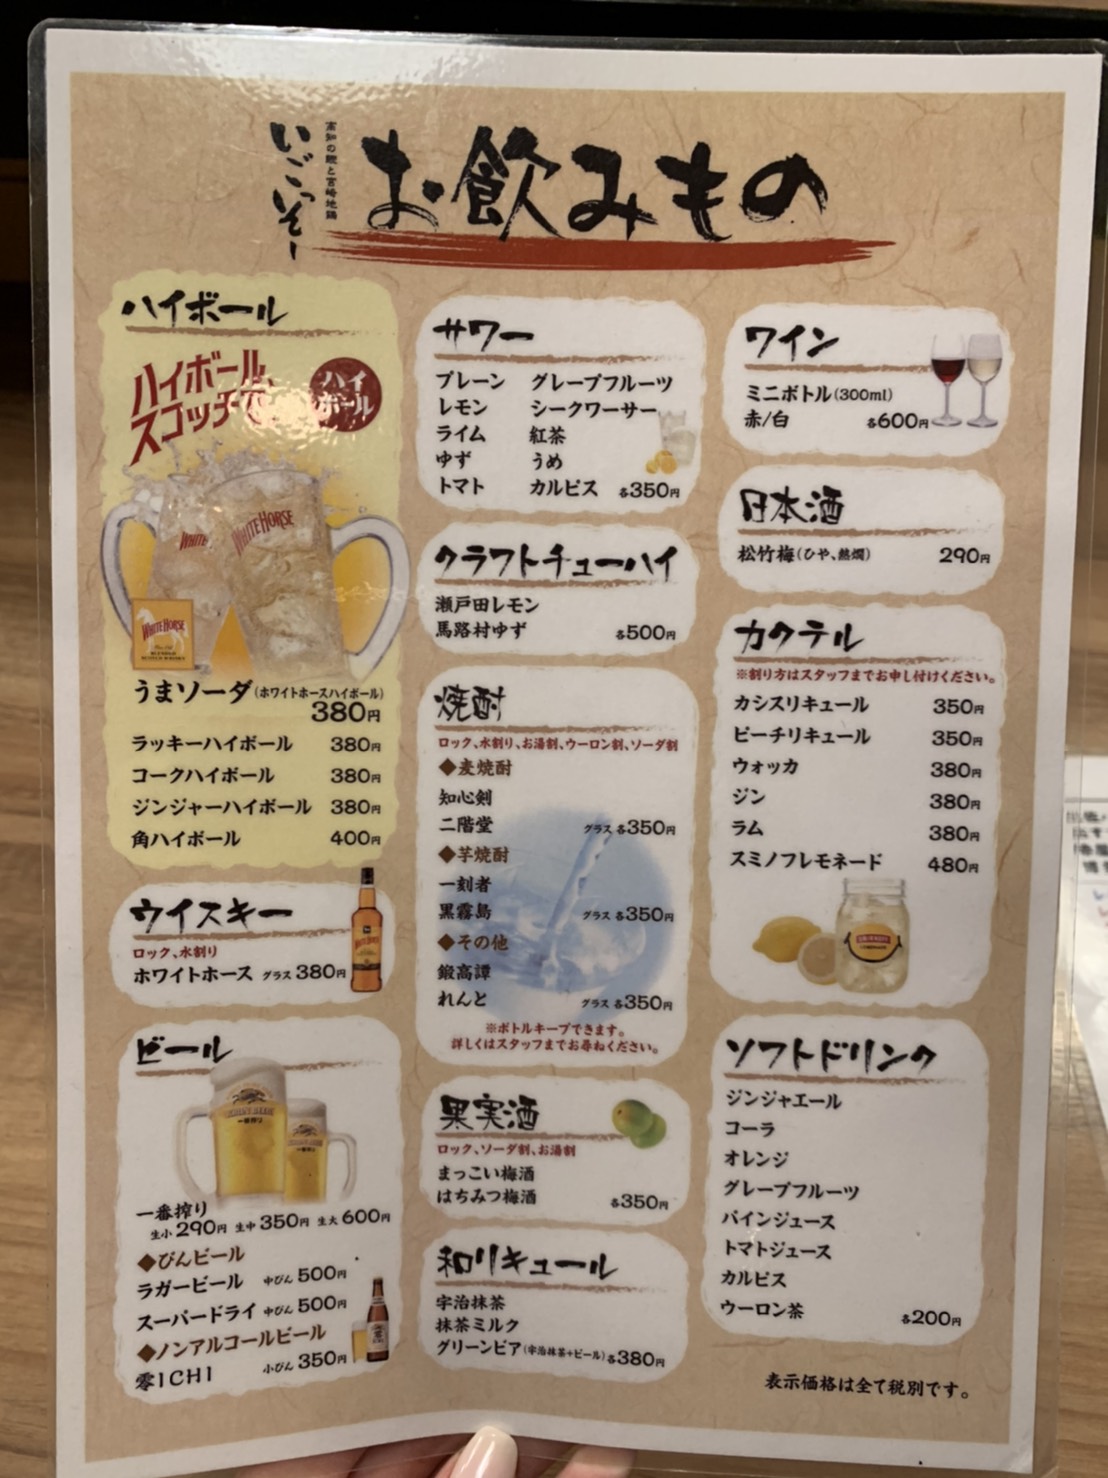 高知の鰹と宮崎地鶏
いごっそー
お飲みもの
ハイボール
ハイボール、
スコッチで。
ハイ
ボール
WHITE HORSE
WHITE HORSE
うまソーダ(ホワイトホースハイボール)
380円
ラッキーハイボール 380円
コークハイボール 380円
ジンジャーハイボール 380円
角ハイボール 400円
ウイスキー
ロック、水割り
ホワイトホース グラス 380円
ビール
一番搾り
一番搾り
生小 290円 生中 350円 生大 600円
◆びんビール
ラガービール 中びん 500円
スーパードライ 中びん 500円
◆ノンアルコールビール
零ICHI 小びん 350円
サワー
プレーン グレープフルーツ
レモン シークワーサー
ライム 紅茶
ゆず うめ
トマト カルピス 各350円
クラフトチューハイ
瀬戸田レモン
馬路村ゆず 各500円
焼酎
ロック、水割り、お湯割、ウーロン割、ソーダ割
◆麦焼酎
知心剣
二階堂 グラス 各350円
◆芋焼酎
一刻者
黒霧島 グラス 各350円
◆その他
鍛高譚
れんと グラス 各350円
※ボトルキープできます。
詳しくはスタッフまでお尋ねください。
果実酒
ロック、ソーダ割、お湯割
まっこい梅酒
はちみつ梅酒 各350円
和リキュール
宇治抹茶
抹茶ミルク
グリーンビア(宇治抹茶+ビール) 各380円
ワイン
ミニボトル(300ml)
赤/白 各600円
日本酒
松竹梅(ひや、熱燗) 290円
カクテル
※割り方はスタッフまでお申し付けください。
カシスリキュール 350円
ピーチリキュール 350円
ウォッカ 380円
ジン 380円
ラム 380円
スミノフレモネード 480円
ソフトドリンク
ジンジャエール
コーラ
オレンジ
グレープフルーツ
パインジュース
トマトジュース
カルピス
ウーロン茶 各200円
表示価格は全て税別です。